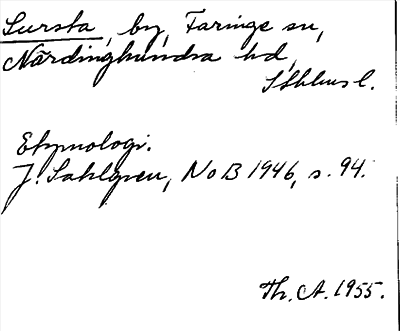 Sursta, by, Faringe sn,
Närdinghundra hd,
Sthlms l.
Etymologi.
J. Sahlgren, NoB 1946, s. 94.
Th. A. 1955.